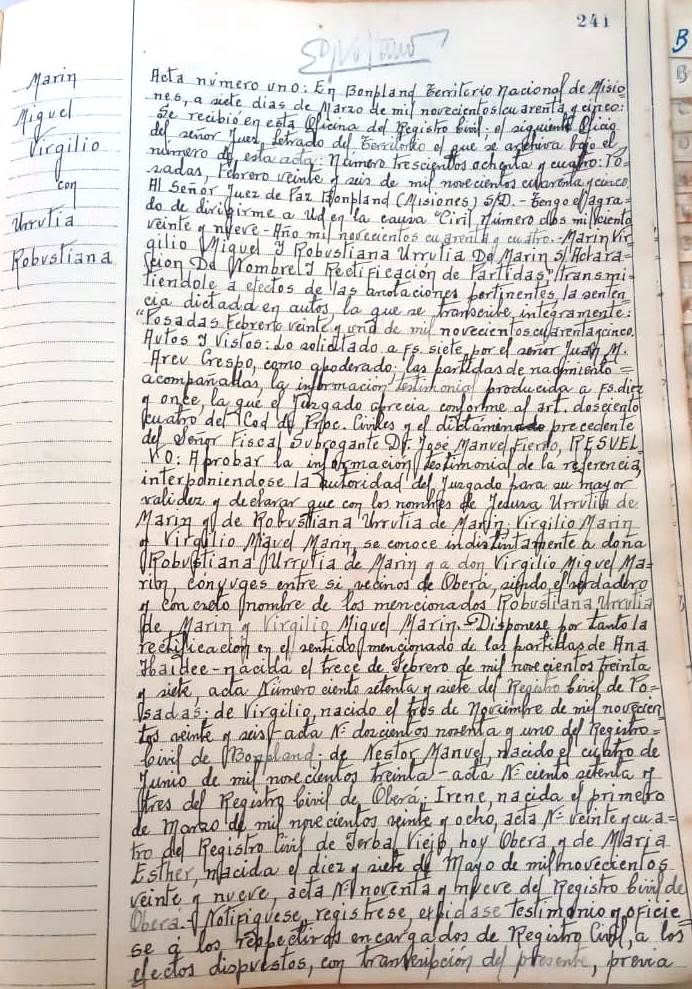 241
Marin
Miguel
Virgilio
con
Urrutia
Robustiana
Acta número uno: En Bonpland Territorio Nacional de Misio=
nes, a siete dias de Marzo de mil novecientos cuarenta y cinco:
Se recibió en esta Oficina del Registro Civil; el siguiente Oficio
del señor Juez Letrado del Territorio el que se archiva bajo el
número de esta acta: Número trescientos ochenta y cuatro: Po=
sadas, Febrero veinte y seis de mil novecientos cuarenta y cinco.
Al Señor Juez de Paz Bonpland (Misiones) S/D.- Tengo el agra=
do de dirigirme a Ud en la causa "Civil Número dos mil ciento
veinte y nueve - Año mil novecientos cuarenta y cuatro - Marin Vir=
gilio Miguel y Robustiana Urrutia De Marin S/ Aclara=
cion De Nombre y Rectificación de Partidas", transmi=
tiendole a efectos de las anotaciones pertinentes la senten=
cia dictada en autos, la que se transcribe, integramente:
"Posadas Febrero veinte y uno de mil novecientos cuarenta y cinco.
Autos y Vistos: Lo solicitado a Fs. siete, por el señor Juan M.
Arev Crespo, como apoderado; las partidas de nacimiento =
acompañadas, la información testimonial producida a Fs. diez
y once, la que el Juzgado aprecia conforme al art. doscientos
cuatro del Cod de Proc. Civiles y el dictaminado precedente
del Señor Fiscal Subrogante Dr. José Manuel Fierro, RESUEL
VO: Aprobar la información testimonial de la referencia
interponiendose la autoridad del Juzgado para su mayor
validez y declarar que con los nombres de Jedusa Urrutia de
Marin y de Robustiana Urrutia de Marin; Virgilio Marin
y Virgilio Miguel Marin, se conoce indistintamente a doña
Robustiana Urrutia de Marin y a don Virgilio Miguel Ma=
rin, conyuges entre si, vecinos de Oberá, siendo el verdadero
y correcto nombre de los mencionados Robustiana Urrutia
de Marin y Virgilio Miguel Marin.- Disponese por tanto la
rectificación en el sentido mencionado de las partidas de Ana
Haidee - nacida el trece de Febrero de mil novecientos treinta
y siete, acta Número ciento setenta y siete del Registro Civil de Po=
sadas; de Virgilio, nacido el tres de Noviembre de mil novecien
tos veinte y seis - acta Nº doscientos noventa y uno del Registro=
Civil de Bonpland; de Nestor Manuel, nacido el cuatro de
Junio de mil novecientos treinta - acta Nº ciento setenta y
tres del Registro Civil de Oberá; Irene, nacida el primero
de Marzo de mil novecientos veinte y ocho, acta Nº veinte y cua=
tro del Registro Civil de Yerbal Viejo, hoy Obera y de Maria
Esther, nacida el diez y siete de Mayo de mil novecientos
veinte y nueve, acta Nº noventa y nueve del Registro Civil de
Oberá.- Notifiquese, registrese, expidase testimonio y oficie=
se a los respectivos encargados de Registro Civil, a los
efectos dispuestos, con transcripción del presente, previa
B
B
C